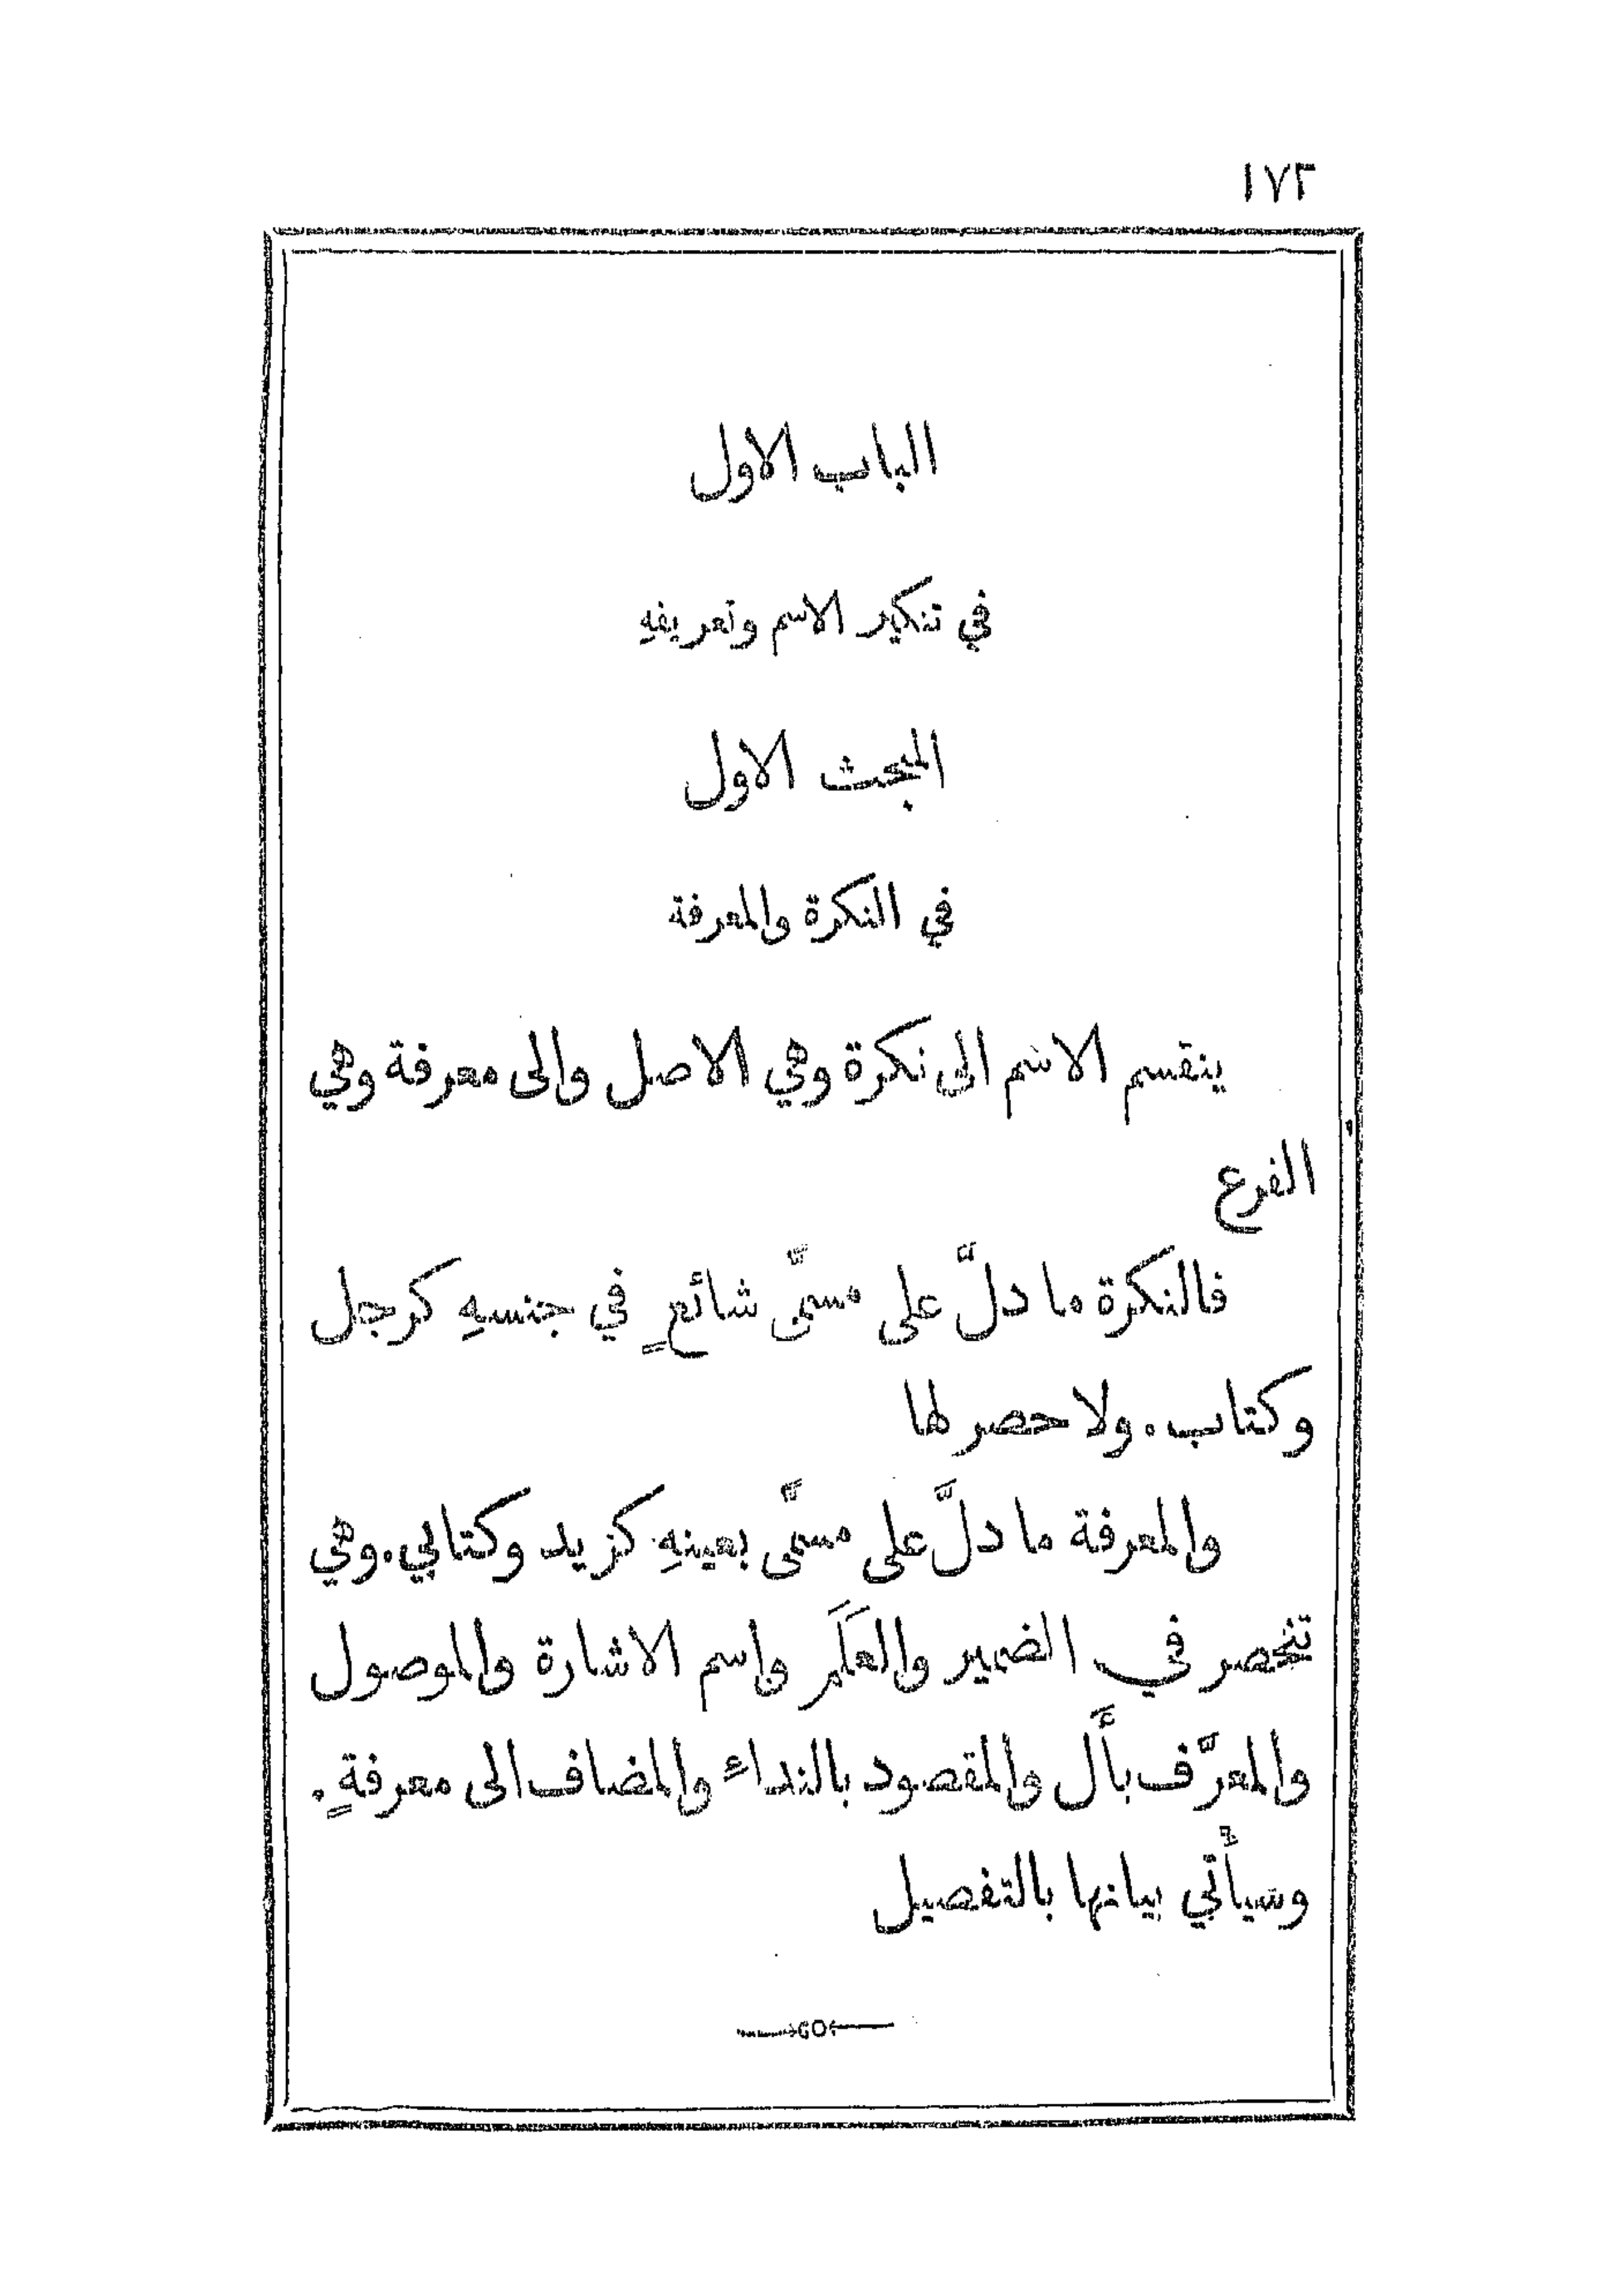 ١٧٢
الباب الاول
في تنكير الاسم وتعريفهِ
المبحث الاول
في النكرة والمعرفة
ينقسم الاسم الى نكرة وهي الاصل والى معرفة وهي
الفرع
فالنكرة ما دلَّ على مسمًّى شائعٍ في جنسهِ كرجل
وكتاب. ولا حصر لها
والمعرفة ما دلَّ على مسمًّى بعينهِ كزيد وكتابي. وهي
تنحصر في الضمير والعَلَم واسم الاشارة والموصول
والمعرَّف بأَل والمقصود بالنداءِ والمضاف الى معرفةٍ.
وسيأْتي بيانها بالتفصيل